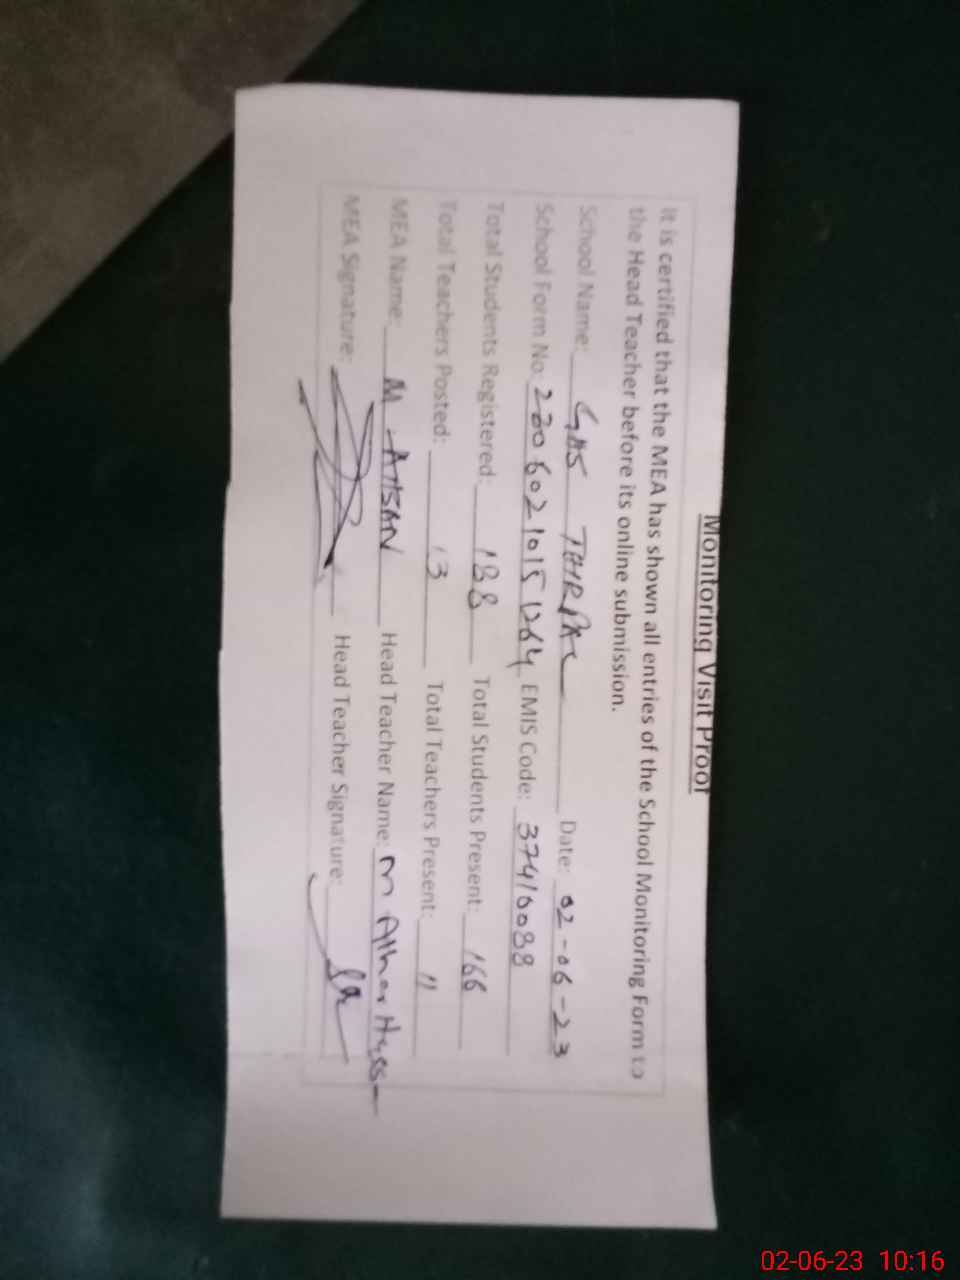 Monitoring Visit Proof
It is certified that the MEA has shown all entries of the School Monitoring Form to
the Head Teacher before its online submission.
School Name: GHS Date: 02-06-23
School Form No: EMIS Code: 37410088
Total Students Registered: 188 Total Students Present: 166
Total Teachers Posted: 13 Total Teachers Present: 11
MEA Name: M. AHSAN Head Teacher Name: M Athar
MEA Signature: Head Teacher Signature:
02-06-23 10:16